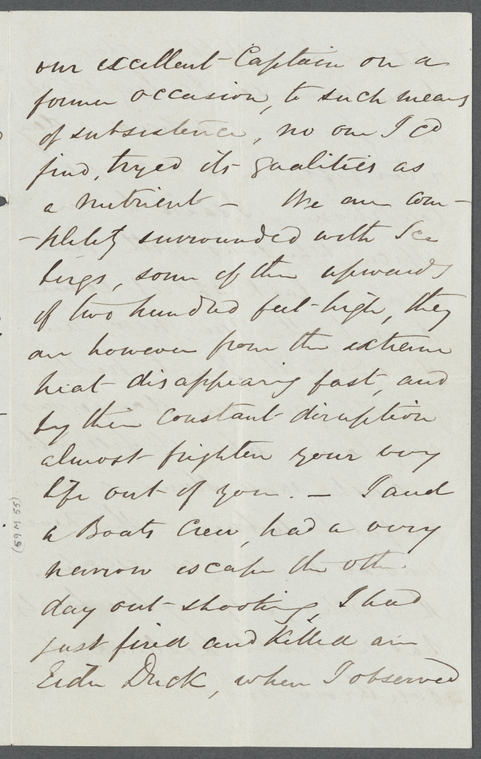 our excellent Captain on a
former occasion, to such means
of subsistence, no one I cd
find, tryed its qualities as
a nutrient – We are com-
-pletely surrounded with Ice
bergs, some of them upwards
of two hundred feet high, they
are however from the extreme
heat disappearing fast, and
by their constant disruption
almost frighten your very
life out of you. – I and
a Boats Crew, had a very
narrow escape the oth.
day out shooting, I had
just fired and killed an
Eider Duck, when I observed
(59 M 55)